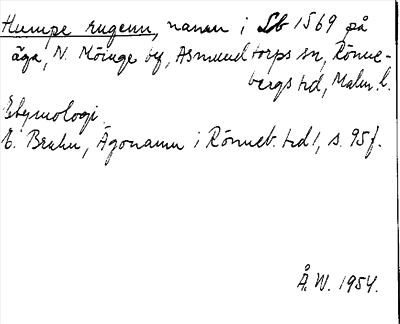 Humpe rugenn, namn i Lb 1569 på
äga, N. Möinge by, Asmundtorps sn, Rönne-
bergs hd, Malm. l.
Etymologi.
E. Brahn, Ägonamn i Rönneb. hd 1, s. 95 f.
Å. W. 1954.